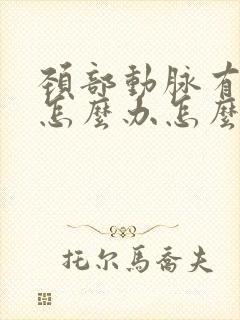 頚部動脉有
怎麼办怎麼
托尔馬喬夫